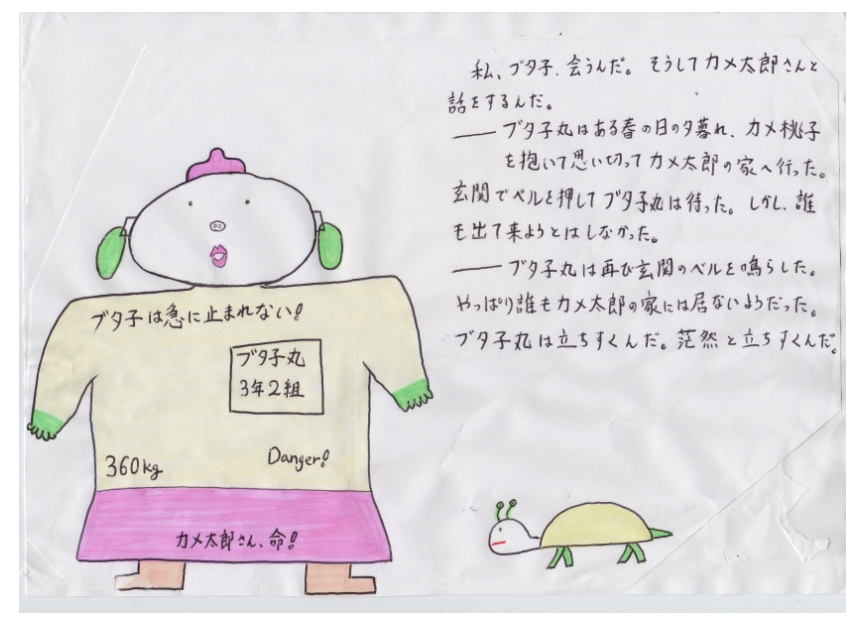 私、ブタ子、会うんだ。そうしてカメ太郎さんと
話をするんだ。
―― ブタ子丸はある春の日の夕暮れ、カメ桃子
を抱いて思い切ってカメ太郎の家へ行った。
玄関でベルを押してブタ子丸は待った。しかし、誰
も出て来ようとはしなかった。
―― ブタ子丸は再び玄関のベルを鳴らした。
やっぱり誰もカメ太郎の家には居ないようだった。
ブタ子丸は立ちすくんだ。茫然と立ちすくんだ。
ブタ子は急に止まれない!
ブタ子丸
3年2組
360kg
Danger!
カメ太郎さん、命!